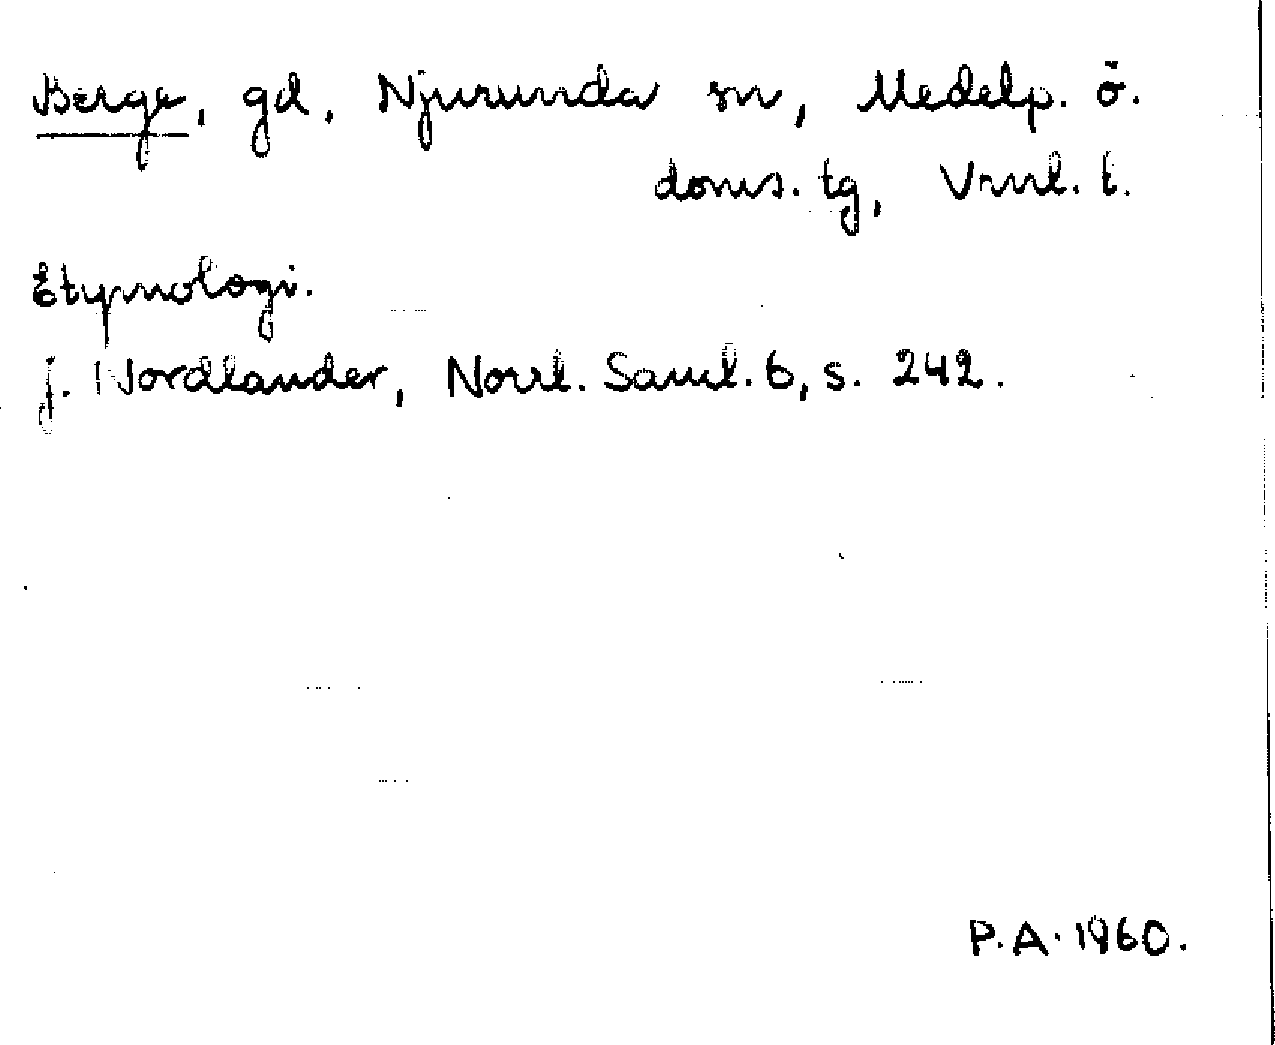 Berge, gd, Njurunda sn, Medelp. ö.
doms. tg, Vrnl. l.
Etymologi.
J. Nordlander, Norrl. Saml. 6, s. 242.
P.A. 1960.